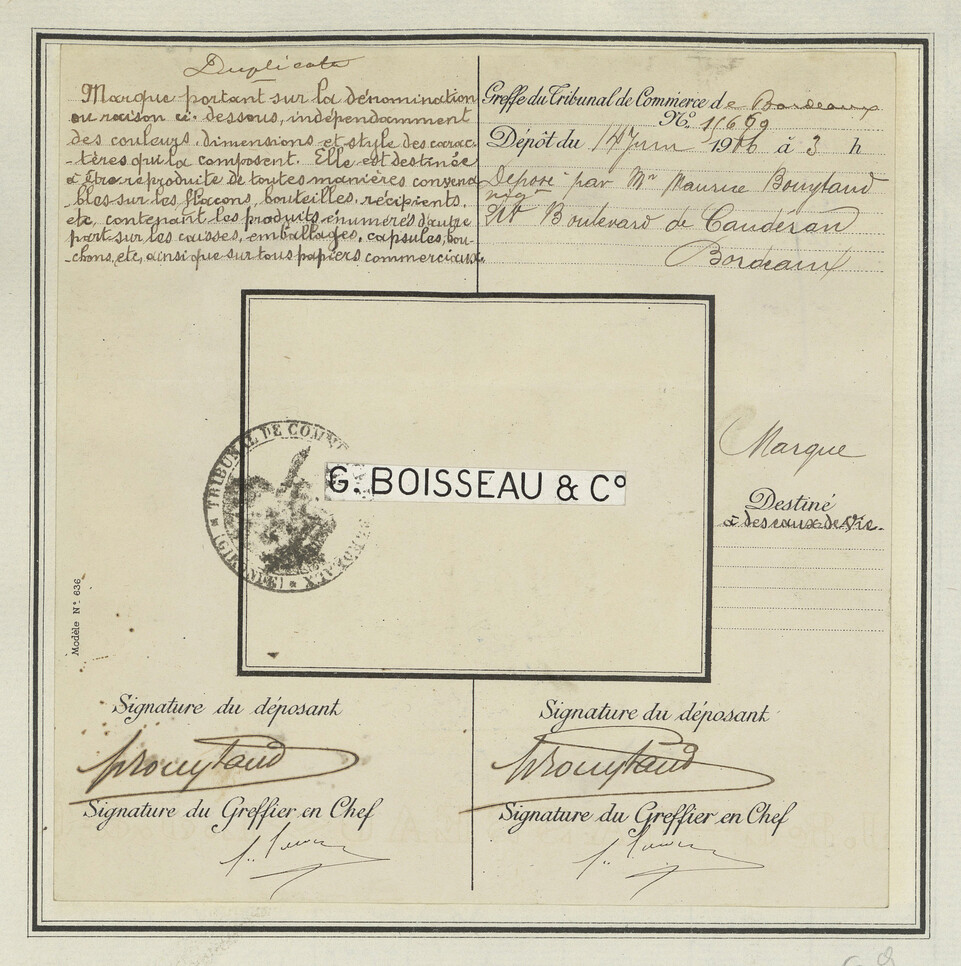 Duplicata
Marque portant sur la dénomination
ou raison ci-dessous, indépendamment
des couleurs, dimensions et style des carac-
-tères qui la composent. Elle est destinée
à être reproduite de toutes manières convena
bles sur les flacons, bouteilles, récipients,
etc, contenant les produits énumérés d'autre
part sur les caisses, emballages, capsules, bou-
-chons, etc, ainsi que sur tous papiers commerciaux.
Greffe du Tribunal de Commerce de Bordeaux
No.
Dépôt du 14 Juin 1916 à 3 h
Déposé par Mr Maurice
Boulevard de Caudéran
Bordeaux
TRIBUNAL DE COMM
(GIRONDE)
G. BOISSEAU & Co
Marque
Destiné
à des eaux-de-Vie.
Modèle No. 636
Signature du déposant
Signature du Greffier en Chef
Signature du déposant
Signature du Greffier en Chef